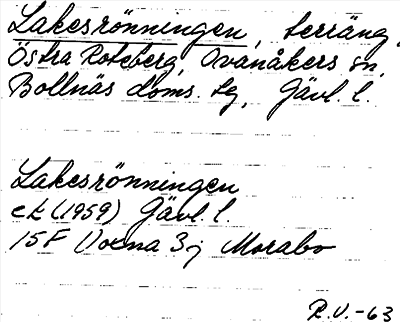 Lakesrönningen, terräng,
Östra Roteberg, Ovanåkers sn,
Bollnäs doms. tg, Gävl. l.
Lakesrönningen
ek (1959) Gävl. l.
15F Voxna 3j Morabo
R.V.-63